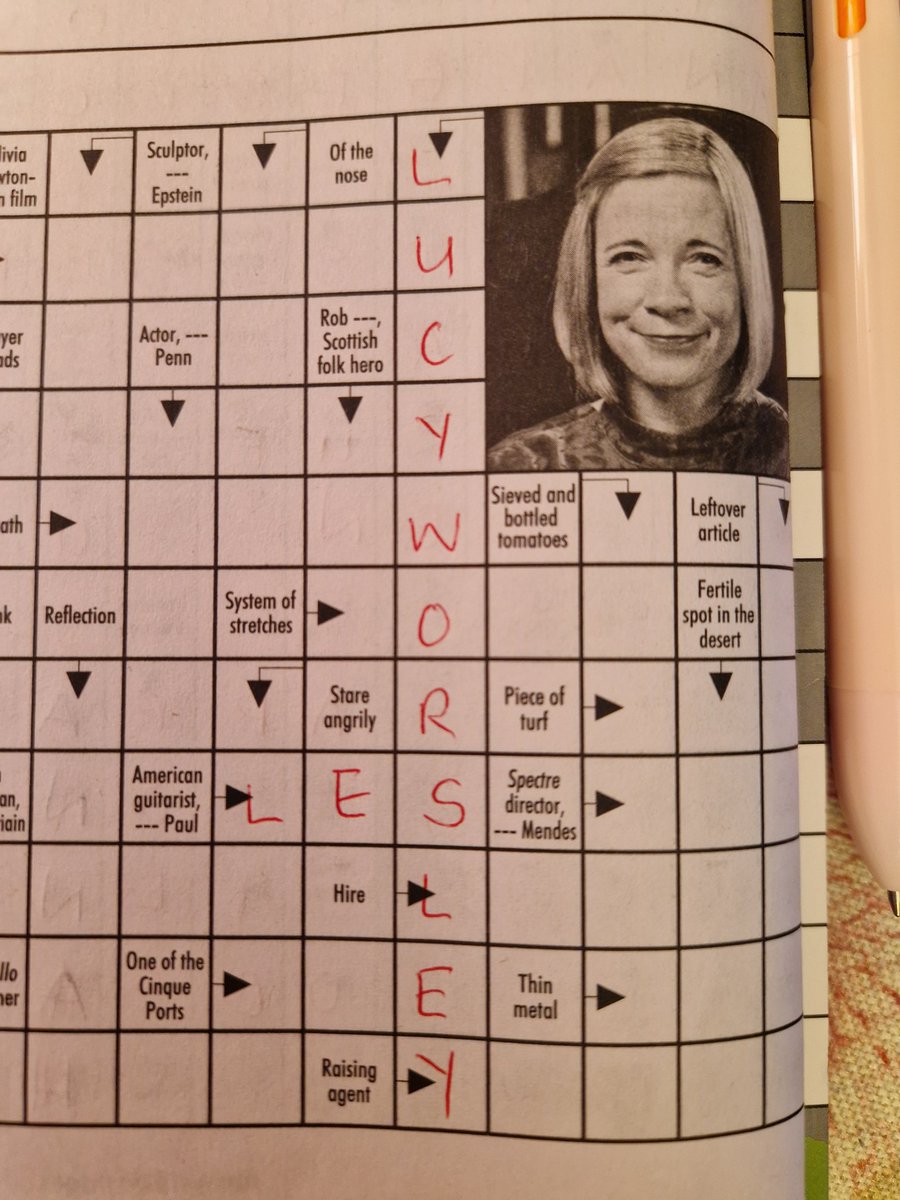 livia
wton-
n film
Sculptor,
---
Epstein
Of the
nose
L
U
yer
ads
Actor, ---
Penn
Rob ---,
Scottish
folk hero
C
Y
ath
W
Sieved and
bottled
tomatoes
Leftover
article
nk
Reflection
System of
stretches
O
Fertile
spot in the
desert
Stare
angrily
R
Piece of
turf
an,
iain
American
guitarist,
--- Paul
L E S
Spectre
director,
--- Mendes
Hire
L
llo
ner
One of the
Cinque
Ports
E
Thin
metal
Raising
agent
Y